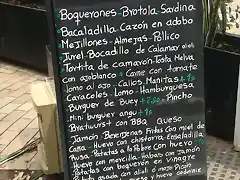 Boquerones - Brotola Sardina
Bacaladilla Cazón en adobo
Mejillones - Almejas - Pollico
Jurel - Bocadillo de Calamar alioli
Tortita de camarón - Tosta Melva
con ajoblanco + Carne con tomate
Lomo al ajo - Callos Manitas +1€
Caracoles - Lomo - Hamburguesa
Burguer de Buey +2,50 - Pincho
Mini burguer angu +1€
Bratwurst con BBQ Queso
Jamón - Berenjenas Fritas con miel de
caña - Huevo con chistorra Ensaladilla
Rusa - Patatas a lo Pobre con huevo
Huevo con morcilla - Habas con Jamón
Patatas con boquerón en vinagre